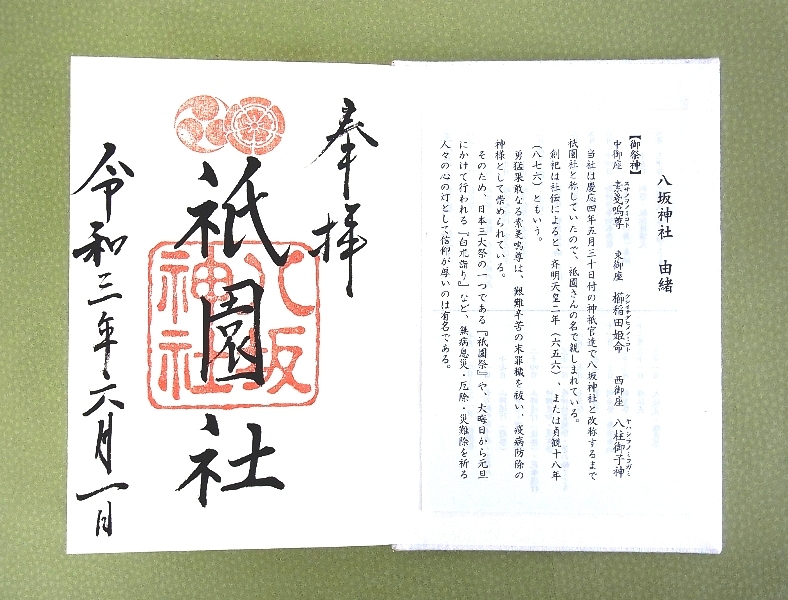 八坂神社 由緒
【御祭神】
中御座 素戔嗚尊 東御座 櫛稲田姫命 西御座 八柱御子神
スサノヲノミコト クシイナダヒメノミコト ヤハシラノミコガミ
当社は慶応四年五月三十日付の神祇官達で八坂神社と改称するまで
祇園社と称していたので、祇園さんの名で親しまれている。
創祀は社伝によると、斉明天皇二年(六五六)、または貞観十八年
(八七六)ともいう。
勇猛果敢なる素戔嗚尊は、艱難辛苦の末罪穢を祓い、疫病防除の
神様として崇められている。
そのため、日本三大祭の一つである『祇園祭』や、大晦日から元旦
にかけて行われる『白朮詣り』など、無病息災・厄除・災難除を祈る
人々の心の灯として信仰が厚いのは有名である。
奉拝
祇園社
八坂
神社
令和三年六月一日